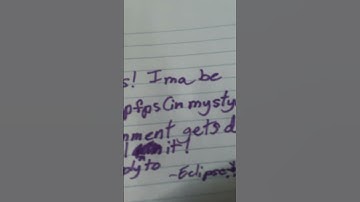 s! Ima be
pfps(in mysty
nment gets d
it!
-Eclipse